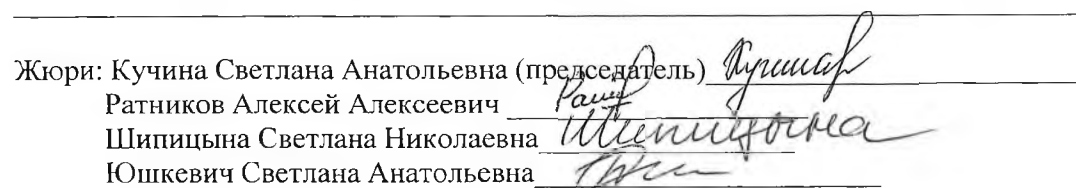 Жюри: Кучина Светлана Анатольевна (председатель)
Ратников Алексей Алексеевич
Шипицына Светлана Николаевна Шипицына
Юшкевич Светлана Анатольевна